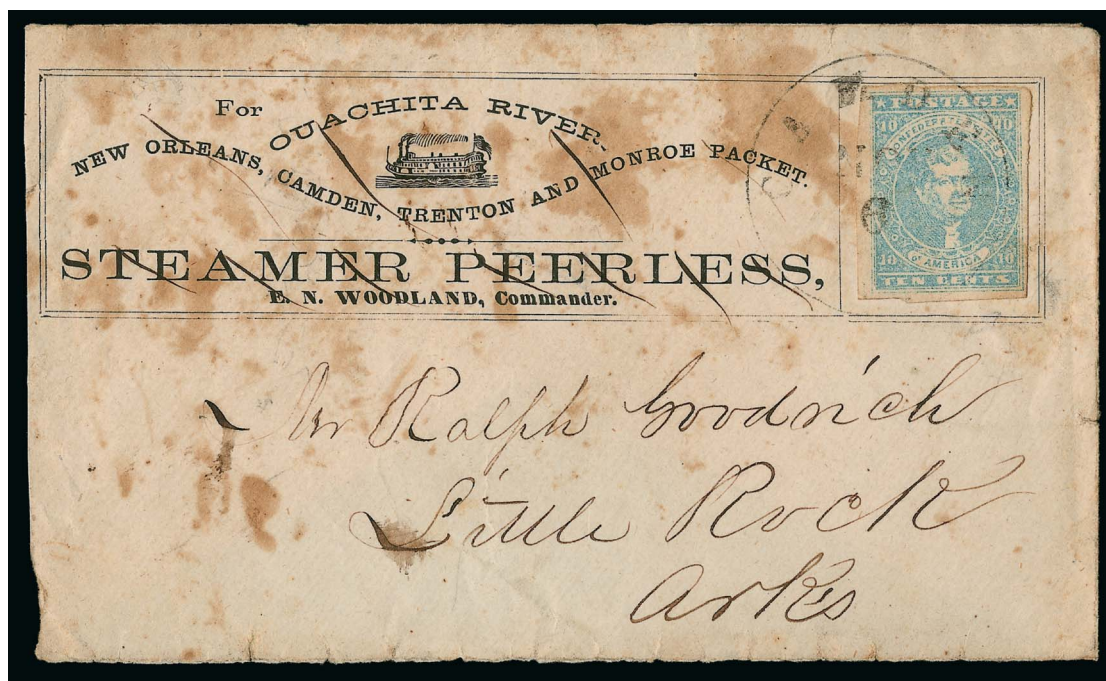 For
OUACHITA RIVER,
NEW ORLEANS, CAMDEN, TRENTON AND MONROE PACKET.
STEAMER PEERLESS,
E. N. WOODLAND, Commander.
POSTAGE
10 10
CONFEDERATE STATES
OF AMERICA
10 10
TEN CENTS
Mr Ralph Goodrich
Little Rock
Arks